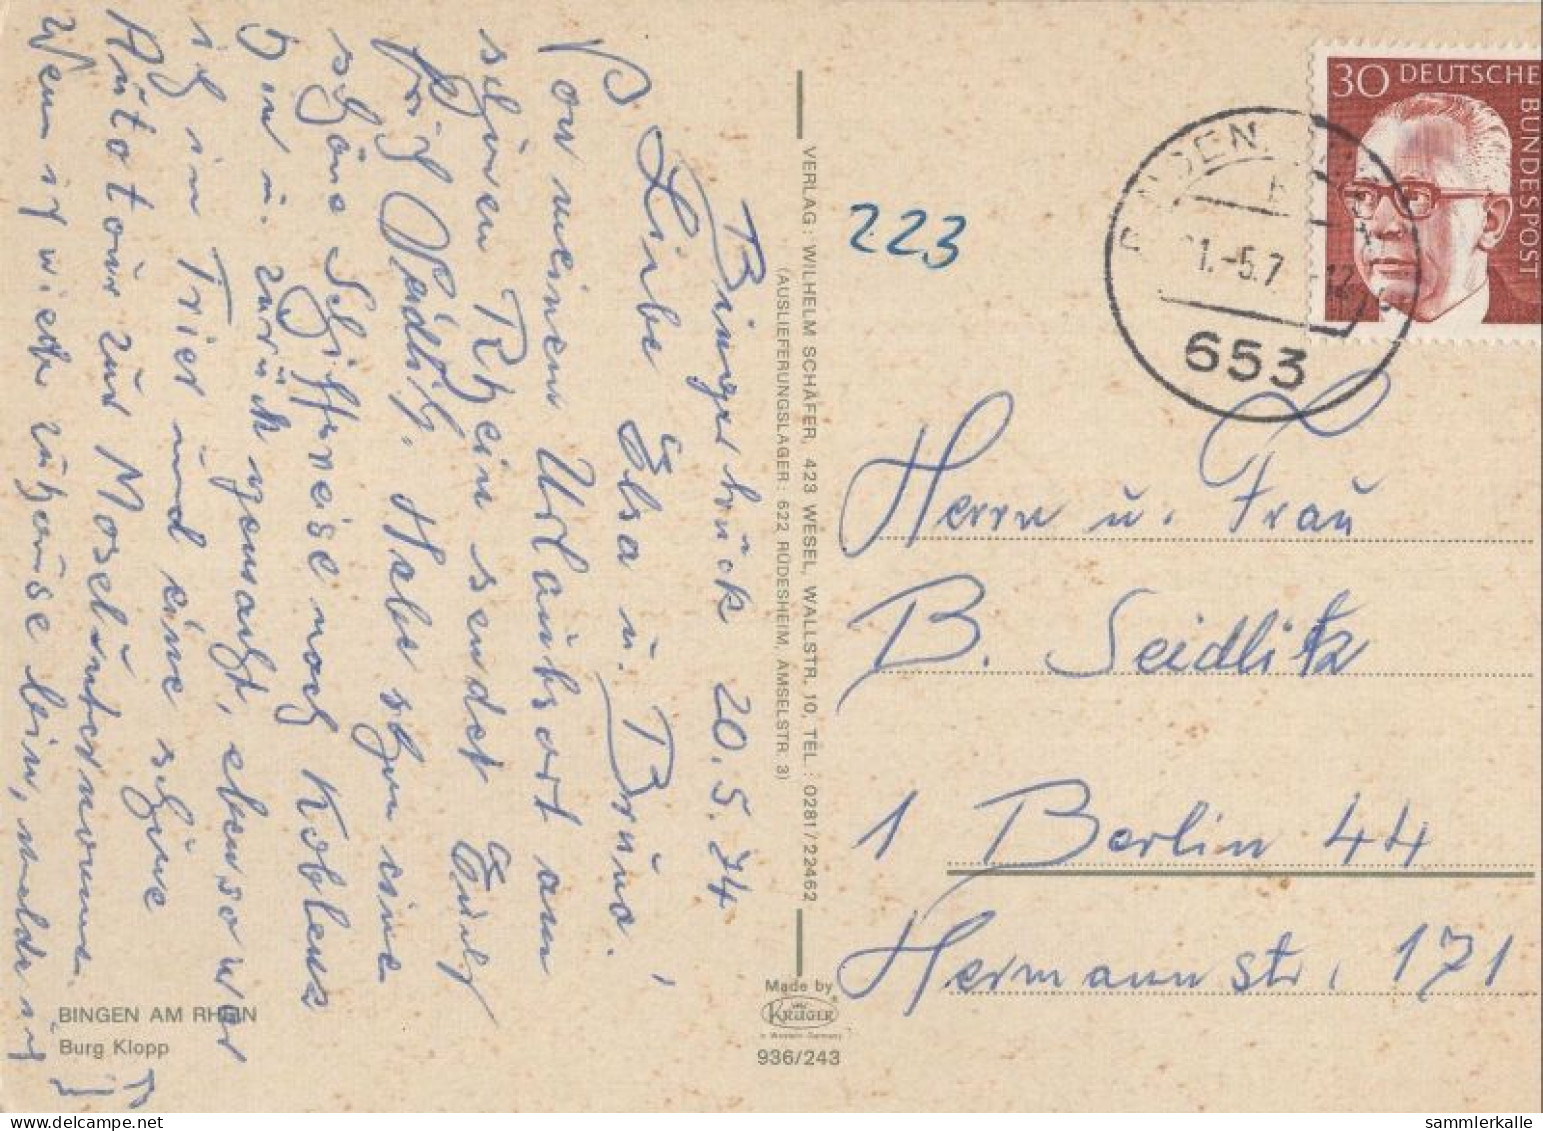 Bingerbrück 20.5.74
Liebe Elsa u. Bruno!
Von meinem Urlaubsort am
schönen Rhein sendet Euch
frdl. Grüße. Habe schon eine
schöne Schiffsreise nach Koblenz
hin u. zurück gemacht, ebenso war
ich in Trier und eine schöne
Autotour zur Mosel unternommen.
Wenn ich wieder zuhause bin, melde ich
VERLAG: WILHELM SCHÄFER, 423 WESEL, WALLSTR. 10, TEL.: 0281/22462
(AUSLIEFERUNGSLAGER: 622 RÜDESHEIM, AMSELSTR. 3)
BINGEN AM RHEIN
Burg Klopp
Made by
KRÜGER
in Western-Germany
936/243
223
30 DEUTSCHE
BUNDESPOST
653
Herrn u. Frau
B. Seidlitz
1 Berlin 44
Hermannstr. 171
sammlerkalle